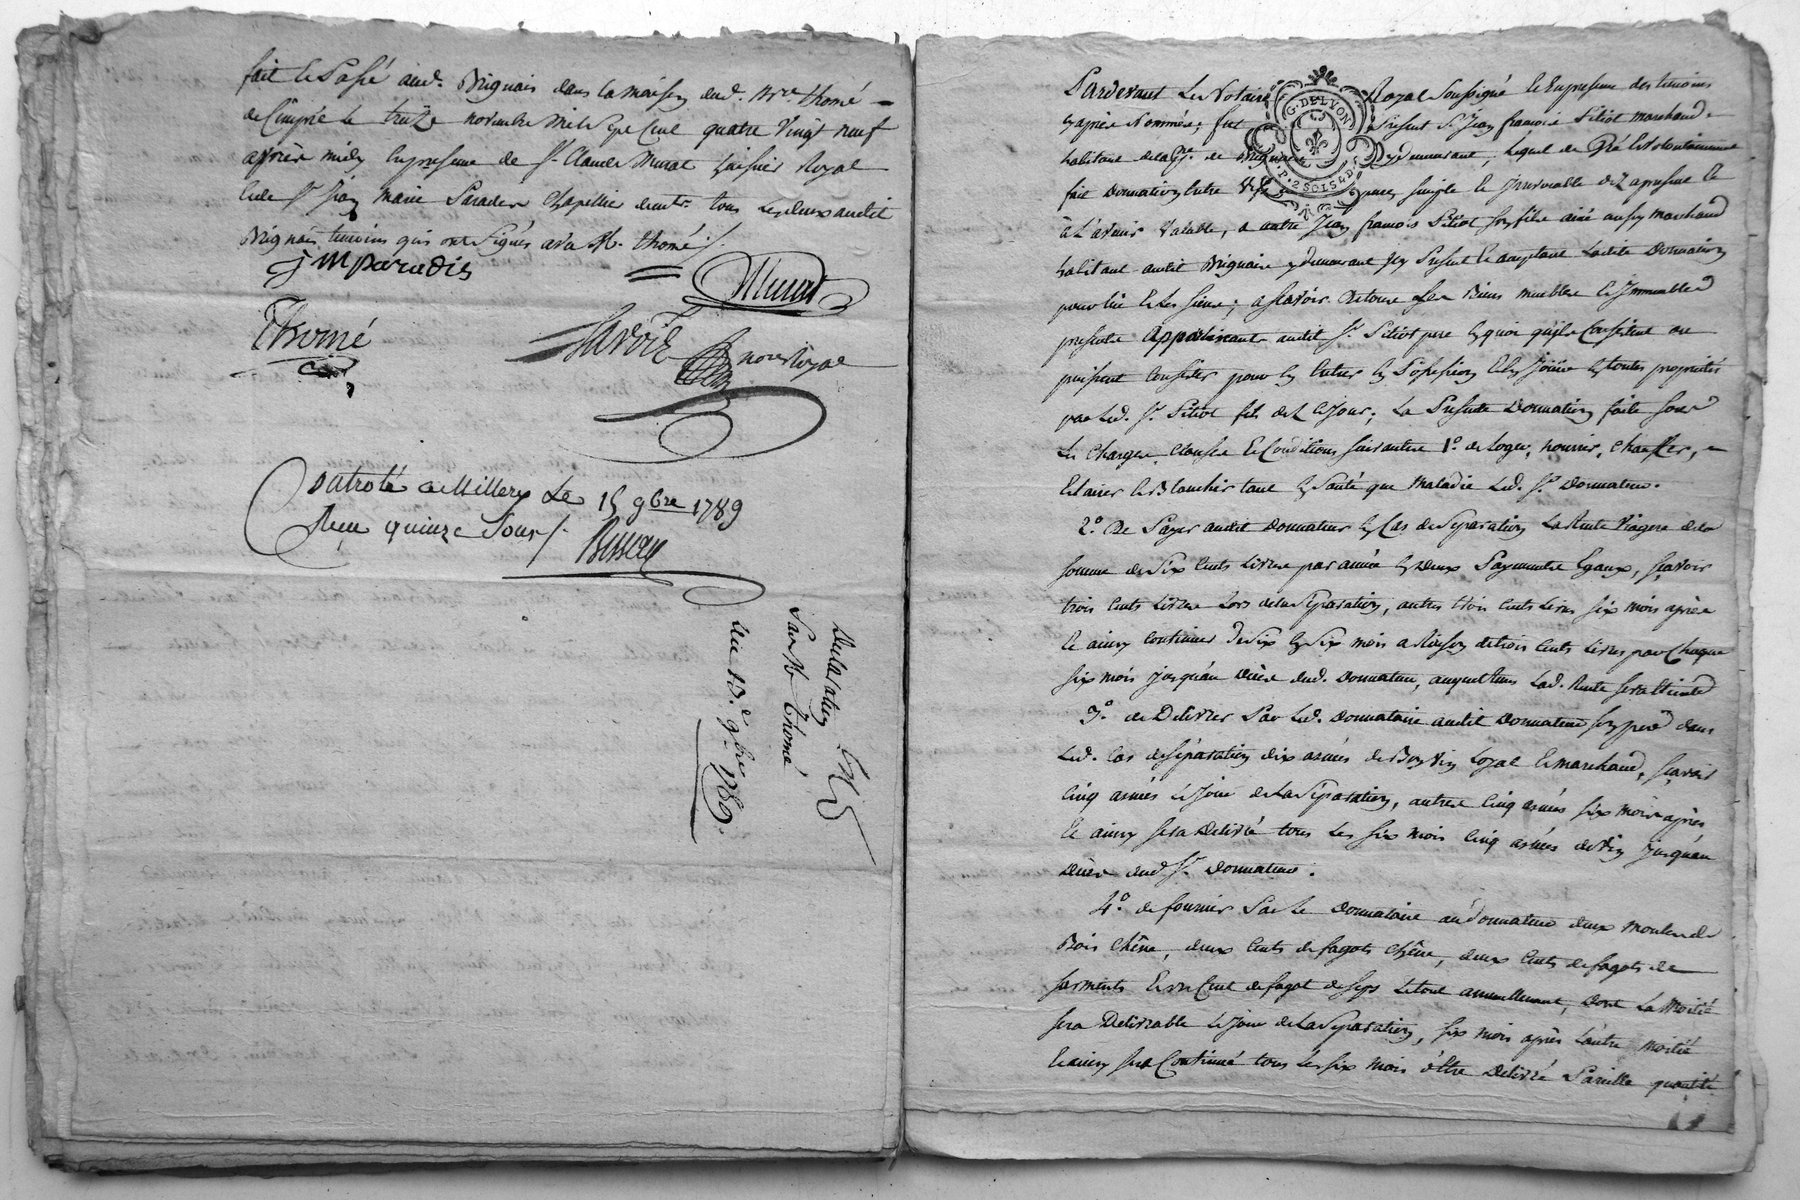 fait et Passé aud. Brignais dans la maison dud. Mre. thomé
de Cimpié le treize novembre mil Sept Cent quatre Vingt neuf
après midy En presence de Sr. Claude Murat huissier Royal
et de Sr. Jean Marie Paradis Chapellier demt. tous Les deux audit
Brignais temoins qui ont Signés avec M. thomé ./.
j M paradis
Murat
Thomé
Lavoie
nore Royal
Controlé a Millery Le 15 9bre 1789
Reçu quinze Sous /.
Declaration
Par M. Thomé
du 13.e 9bre 1789.
G. DELYON
P. 2 SOLS 4 D.
Pardevant Le Notaire Royal Soussigné Et En presence des temoins
cy après Nommés; fut Present Sr. Jean françois Pitiot marchand
habitant de la Psse. de Brignais y demeurant, Lequel de Gré Et Volontairement
fait Donnation Entre Vifs pure, simple Et Irrevocable dez a present Et
à L'avenir Valable, a autre Jean françois Pitiot son fils ainé aussy marchand
habitant audit Brignais y demeurant Icy Present Et acceptant Ladite Donnation
pour lui Et Les siens; a sçavoir De tous ses Biens meubles Et Immeubles
presents Appartenants audit Sr. Pitiot pere En quoi qu'ils Consistent ou
puissent Consister pour En Entrer En Possession Et En Jouir En toutes proprietés
par Led. Sr. Pitiot fils dez Ce Jour; La Presente Donnation faite sous
Les Charges, Clauses Et Conditions suivantes 1º. de Loger, nourrir, chauffer,
Eclairer Et Blanchir tant En Santé que Maladie Led. Sr. Donnateur.
2º. De Payer audit Donnateur En Cas de Separation La Rente Viagere de la
somme de Six Cents Livres par année En deux Payements Egaux, sçavoir
trois Cents Livres Lors de la Separation, autres trois Cents Livres six mois après
Et ainsy Continuer de six En six mois a Raison de trois Cents Livres par Chaque
six mois jusqu'au Décès dud. Donnateur, auquel tems Lad. Rente sera Eteinte
3º. de Delivrer Par Led. Donnataire audit Donnateur son pere dans
Led. Cas de Séparation dix asnées de Bon Vin Loyal Et marchand, sçavoir
Cinq asnées Le Jour de La Separation, autres Cinq asnées six mois après
Et ainsy sera Delivré tous Les six mois Cinq asnées de Vin Jusqu'au
Décès dud Sr. Donnateur.
4º. de fournir Par Le Donnataire au Donnateur deux moules de
Bois Chêne, deux Cents de fagots Chêne, deux Cents de fagots de
sarments Et un Cent de fagot de seps Le tout annuellement, dont La Moitié
sera Delivrable Le Jour de La Separation, six mois après L'autre moitié
Et ainsy sera Continué tous Les six mois d'Etre Delivré Pareille quantité